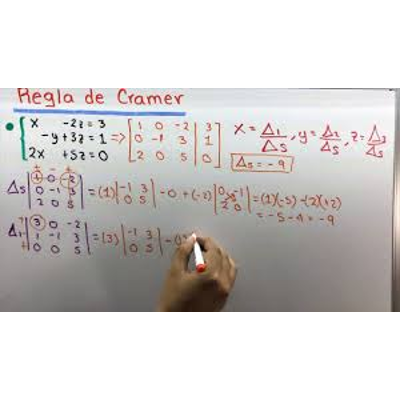 Regla de Cramer
x -2z = 3
-y + 3z = 1
2x +5z = 0
=> [ 1 0 -2 | 3
0 -1 3 | 1
2 0 5 | 0 ]
x = Δ1/Δs , y = Δ2/Δs , z = Δ3/Δs
Δs = -9
+ - +
Δs | 1 0 -2
0 -1 3
2 0 5 | = (1) | -1 3
0 5 | - 0 + (-2) | 0 -1
2 0 | = (1)(-5) - (2)(+2)
= -5 - 4 = -9
Δ1 | 3 0 -2
1 -1 3
0 0 5 | = (3) | -1 3
0 5 | - 0